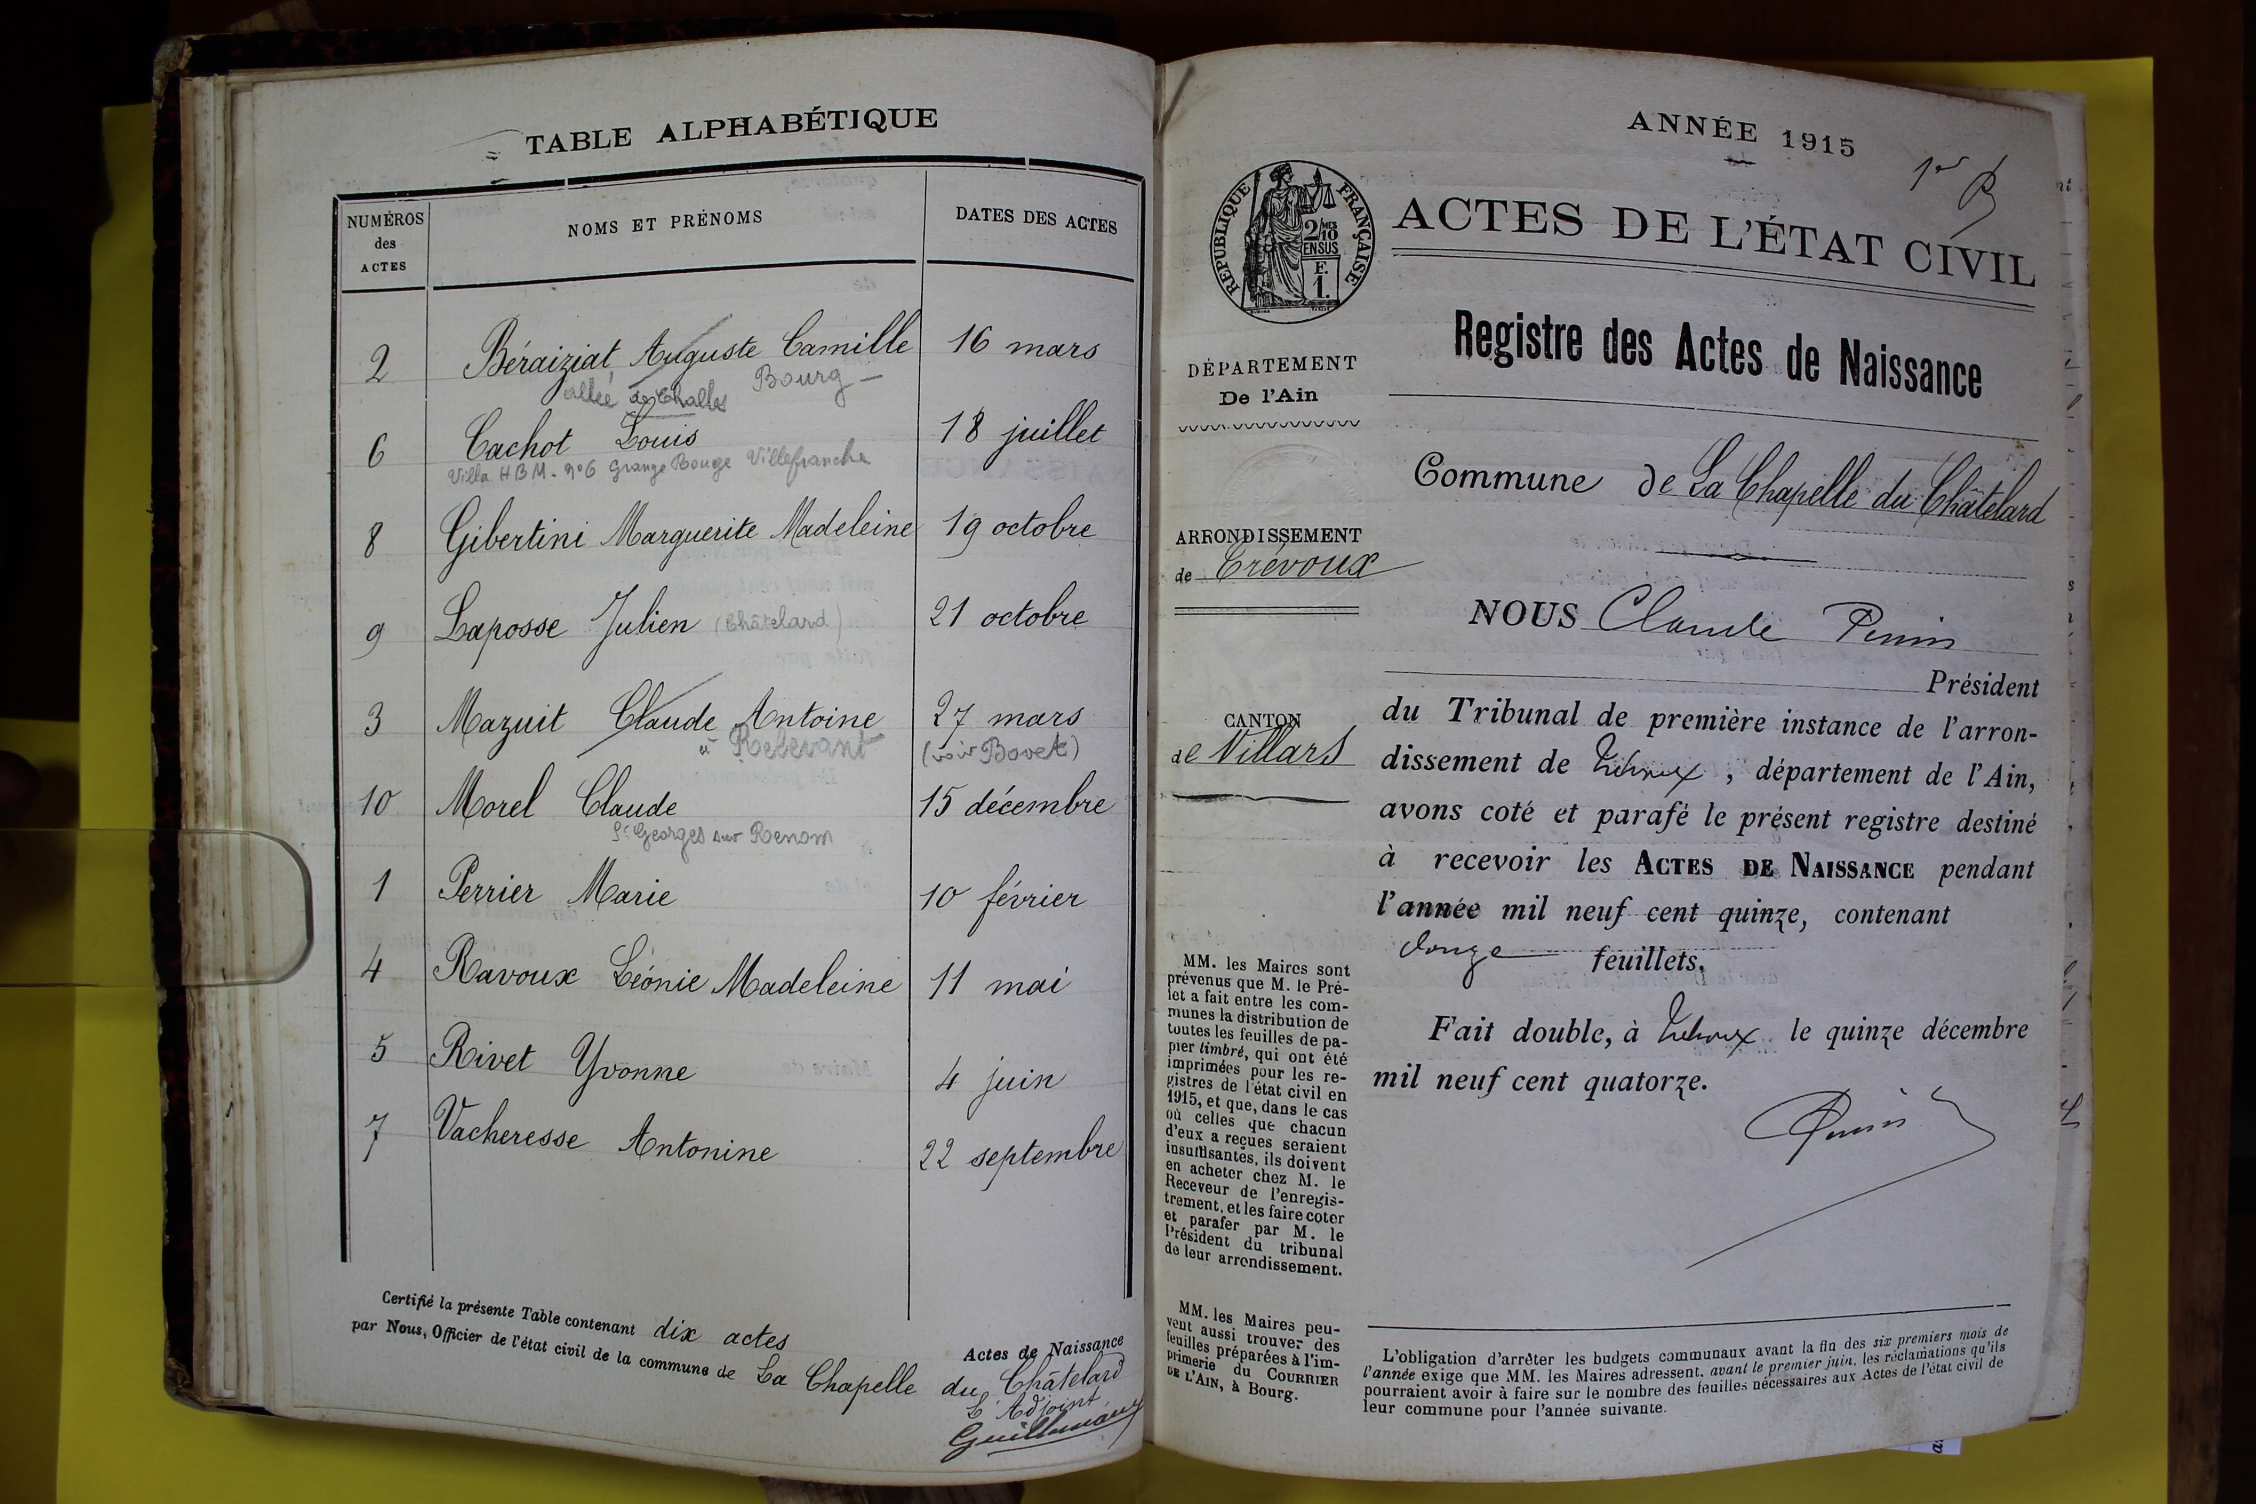 TABLE ALPHABÉTIQUE
NUMÉROS des ACTES
NOMS ET PRÉNOMS
DATES DES ACTES
2 Béraiziat Auguste Camille 16 mars
allée de Challes Bourg
6 Cachot Louis 18 juillet
Villa HBM. N°6 Grange Rouge Villefranche
8 Gibertini Marguerite Madeleine 19 octobre
9 Laposse Julien (Châtelard) 21 octobre
3 Mazuit Claude Antoine 27 mars
à Relevant (voir Bovet)
10 Morel Claude 15 décembre
St Georges sur Renom
1 Perrier Marie 10 février
4 Ravoux Léonie Madeleine 11 mai
5 Rivet Yvonne 4 juin
7 Vacheresse Antonine 22 septembre
Certifié la présente Table contenant dix actes Actes de Naissance
par Nous, Officier de l'état civil de la commune de La Chapelle du Châtelard
L'Adjoint
ANNÉE 1915
1er
RÉPUBLIQUE FRANÇAISE
2/10
EN SUS
F.
1.
ACTES DE L'ÉTAT CIVIL
Registre des Actes de Naissance
DÉPARTEMENT
De l'Ain
Commune de La Chapelle du Châtelard
ARRONDISSEMENT
de Trévoux
NOUS Claude
Président
du Tribunal de première instance de l'arron-
dissement de Trévoux, département de l'Ain,
avons coté et parafé le présent registre destiné
à recevoir les ACTES DE NAISSANCE pendant
l'année mil neuf cent quinze, contenant
douze feuillets.
Fait double, à Trévoux le quinze décembre
mil neuf cent quatorze.
CANTON
de Villars
MM. les Maires sont
prévenus que M. le Pré-
fet a fait entre les com-
munes la distribution de
toutes les feuilles de pa-
pier timbré, qui ont été
imprimées pour les re-
gistres de l'état civil en
1915, et que, dans le cas
où celles que chacun
d'eux a reçues seraient
insuffisantes, ils doivent
en acheter chez M. le
Receveur de l'enregis-
trement, et les faire coter
et parafer par M. le
Président du tribunal
de leur arrondissement.
MM. les Maires peu-
vent aussi trouver des
feuilles préparées à l'im-
primerie du COURRIER
DE L'AIN, à Bourg.
L'obligation d'arrêter les budgets communaux avant la fin des six premiers mois de
l'année exige que MM. les Maires adressent, avant le premier juin, les réclamations qu'ils
pourraient avoir à faire sur le nombre des feuilles nécessaires aux Actes de l'état civil de
leur commune pour l'année suivante.